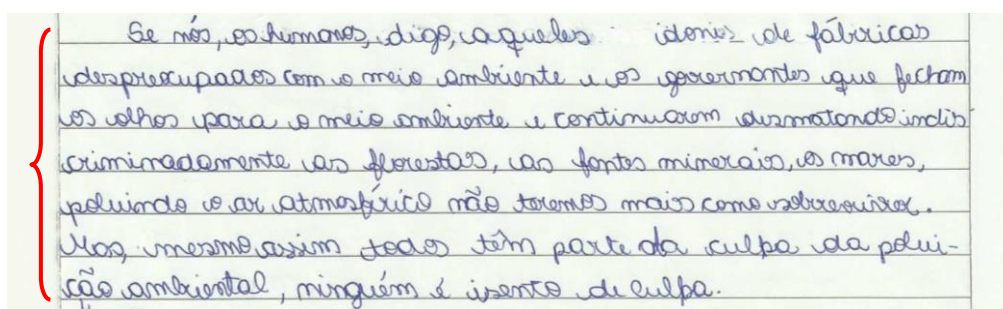 Se nós, os humanos, digo, aqueles donos de fábricas
despreocupados com o meio ambiente e os governantes que fecham
os olhos para o meio ambiente e continuarem desmatando indis-
criminadamente as florestas, as fontes minerais, os mares,
poluindo o ar atmosférico não teremos mais como sobreviver.
Mas, mesmo assim todos têm parte da culpa da polui-
ção ambiental, ninguém é isento de culpa.